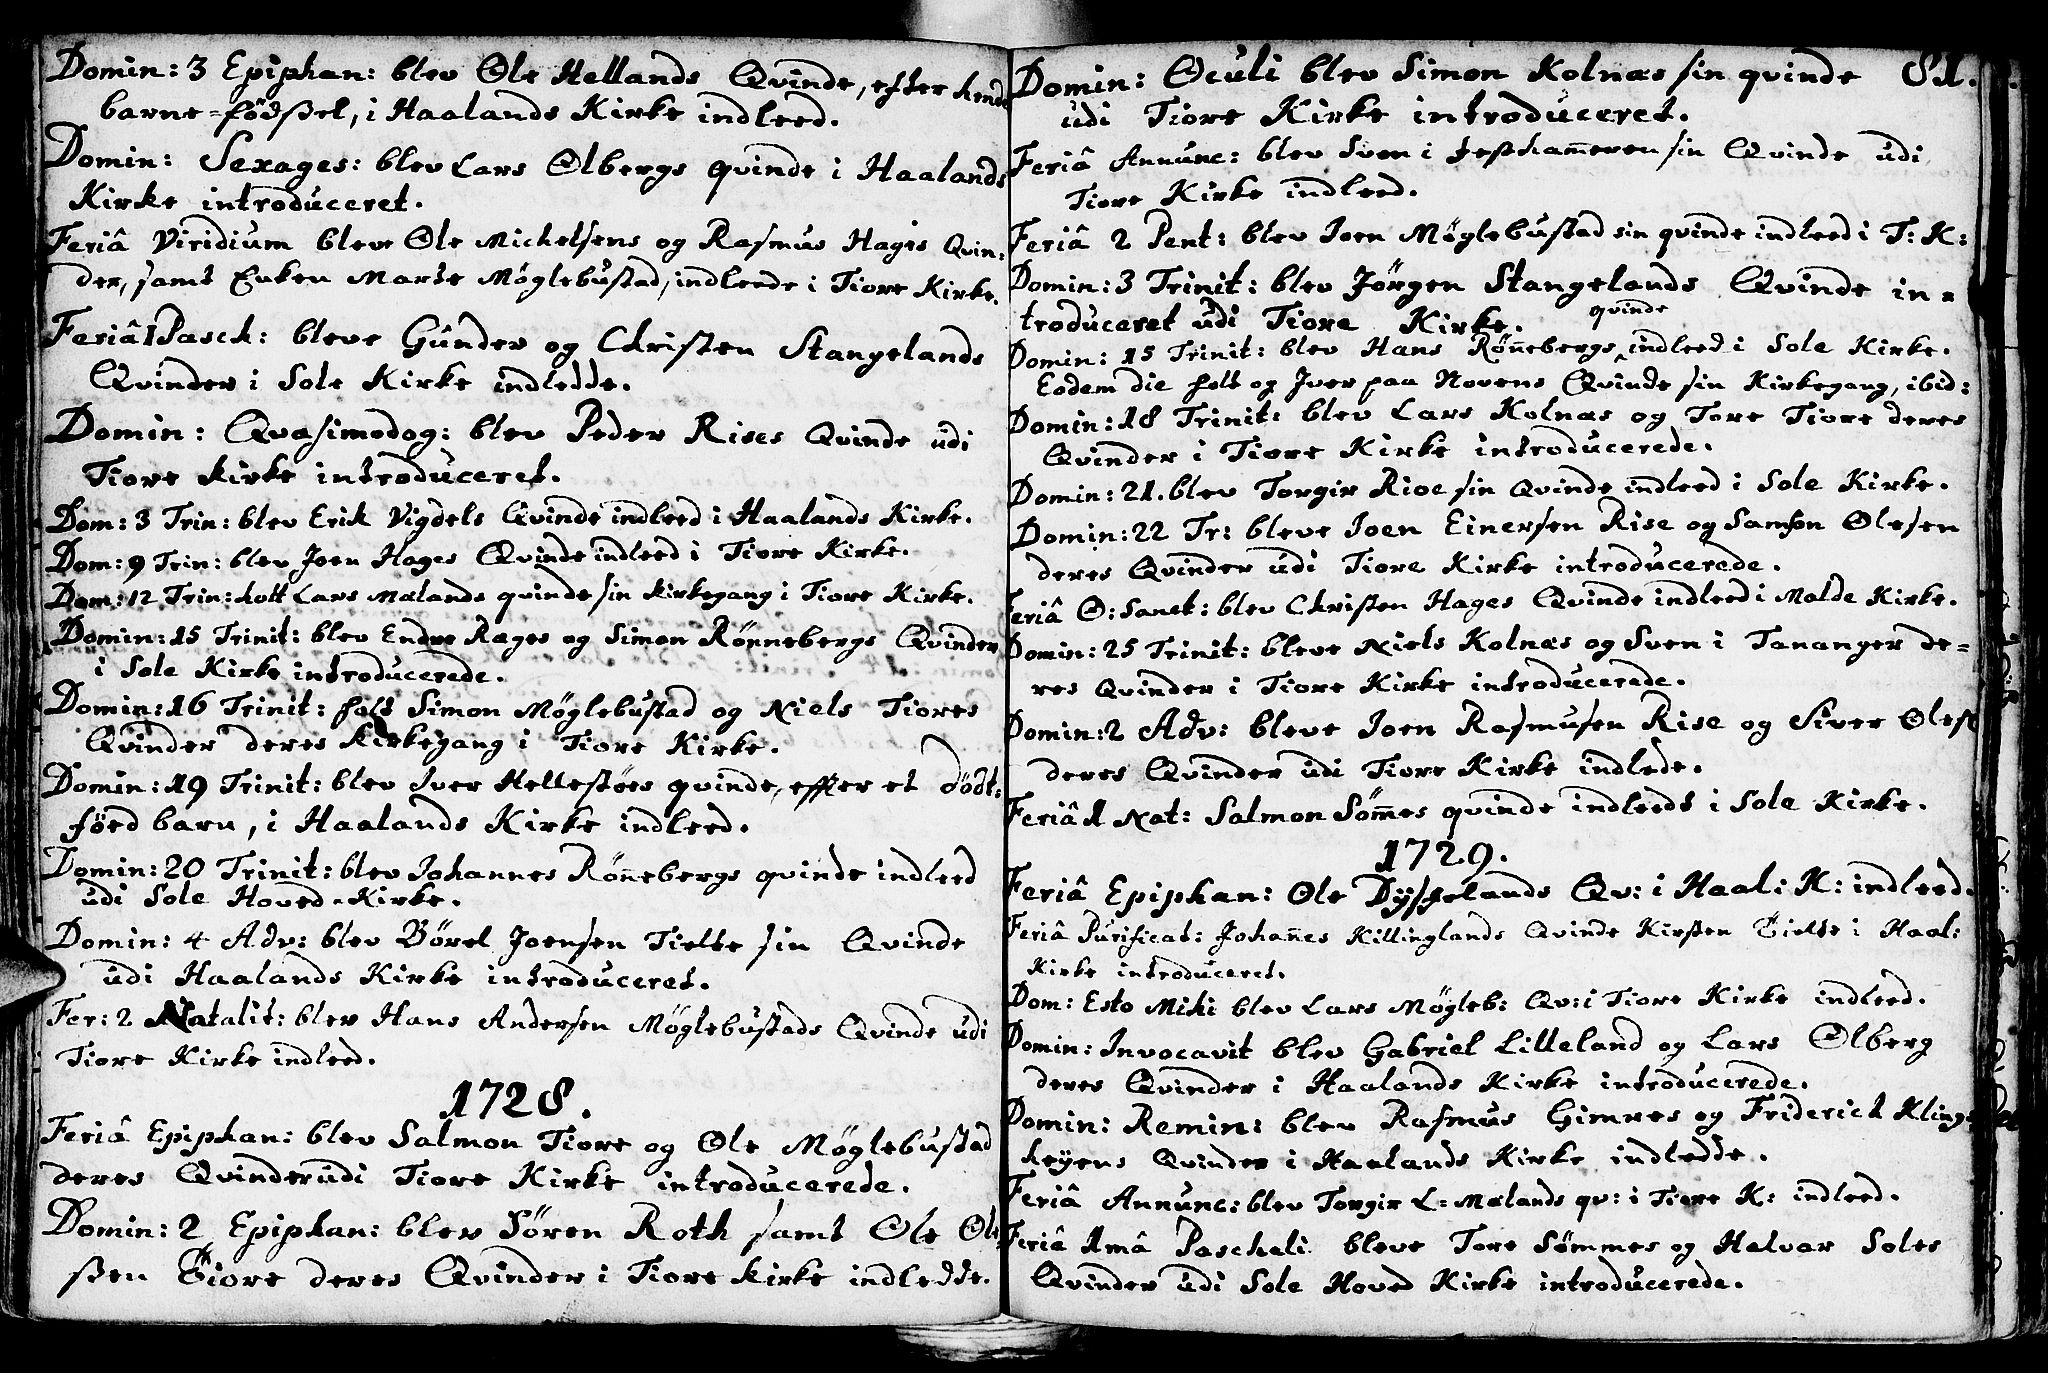 Domin: 3 Epiphan: blev Ole Hellands Qvinde, efter hends
barne-födßel, i Haalands Kirke indleed.
Domin: Sexages: blev Lars Ølbergs qvinde i Haalands
Kirke introduceret.
Feriâ Viridium bleve Ole Michelsens og Rasmus Hages Qvin:
der, samt Enken Marte Møglebustad, indleede i Tiore Kirke.
Feriâ 1 Pasch: bleve Gunder og Christen Stangelands
Qvinder i Sole Kirke indledde.
Domin: Qvasimodog: blev Peder Rises Qvinde udi
Tiore kirke introduceret.
Dom: 3 Trin: blev Erik Vigdels Qvinde indleed i Haalands Kirke.
Dom: 9 Trin: blev Joen Hages Qvinde indleed i Tiore Kirke.
Dom: 12 Trin: holt Lars Malands qvinde sin kirkegang i Tiore Kirke.
Domin: 15 Trinit: blev Endre Ræges og Simon Rønnebergs Qvinder
i Sole Kirke introducerede.
Domin: 16 Trinit: holt Simon Møglebustad og Niels Tiores
Qvinder deres Kirkegang i Tiore Kirke.
Domin: 19 Trinit: blev Iver Hellestöes qvinde, effter et dödt:
föed barn, i Haalands Kirke indleed.
Domin: 20 Trinit: blev Johannes Rön̄ebergs qvinde indleed
udi Sole Hoved-Kirke.
Domin: 4 Adv: blev Börel Joensen Tielte sin Qvinde
udi Haalands Kirke introduceret.
Fer: 2 Natalit: blev Hans Andersen Møglebustads Qvinde udi
Tiore Kirke indleed.
1728.
Feriâ Epiphan: blev Salmon Tiore og Ole Møglebustad
deres Qvinder udi Tiore Kirke introducerede.
Domin: 2 Epiphan: blev Sören Roth samt Ole Ole
ßen Tiore deres Qvinder i Tiore kirke indledde.
81.
Domin: Oculi blev Simon Kolnæs sin qvinde
udi Tiore Kirke introduceret.
Feriâ Annunc: blev Sven i Jestham̄eren sin Qvinde udi
Tiore Kirke indleed.
Feriâ 2 Pent: blev Joen Møglebustad sin qvinde indleed i T: K:
Domin: 3 Trinit: blev Jörgen Stangelands Qvinde in=
troduceret udi Tiore Kirke.
qvinde
Domin: 15 Trinit: blev Hans Rön̄ebergs indleed i Sole Kirke.
Eodem die holt og Iver paa Novens Qvinde sin Kirkegang, ibid:
Domin: 18 Trinit: blev Lars Kolnæs og Tore Tiore deres
Qvinder i Tiore Kirke introducerede.
Domin: 21. blev Torgir Rioe sin Qvinde indleed i Sole Kirke.
Domin: 22 Tr: bleve Joen Einersen Rise og Samson Olesen
deres Qvinder udi Tiore Kirke introducerede.
Feriâ O: Sanct: blev Christen Hages Qvinde indleed i Malde Kirke.
Domin: 25 Trinit: bleve Niels Kolnæs og Sven i Tananger de=
res Qvinder i Tiore Kirke introducerede.
Domin: 2 Adv: bleve Joen Rasmusen Rise og Siver Oles
deres Qvinder udi Tiore Kirke indlede.
Feriâ 1 Nat: Salmon Söm̄es qvinde indleedt i Sole Kirke.
1729.
Feriâ Epiphan: Ole Dysjelands Qv: i Haal: K: indleed.
Feriâ Purificat: Johan̄es Killinglands Qvinde Kirsten Tielte i Haal:
Kirke introduceret.
Dom: Esto Mihi blev Lars Mögleb: Qv: i Tiore Kirke indleed.
Domin: Invocavit blev Gabriel Lilleland og Lars Ølberg
deres Qvinder i Haalands Kirke introducerede.
Domin: Remin: blev Rasmus Gimres og Friderich Kling
heyens Qvinder i Haalands Kirke indledde.
Feriâ Annunc: blev Torgir L: Mælands qv: i Tiore K: indleed.
Feriâ 1mâ Paschali bleve Tore Sömmes og Halvar Soles
Qvinder udi Sole Hoved Kirke introducerede.